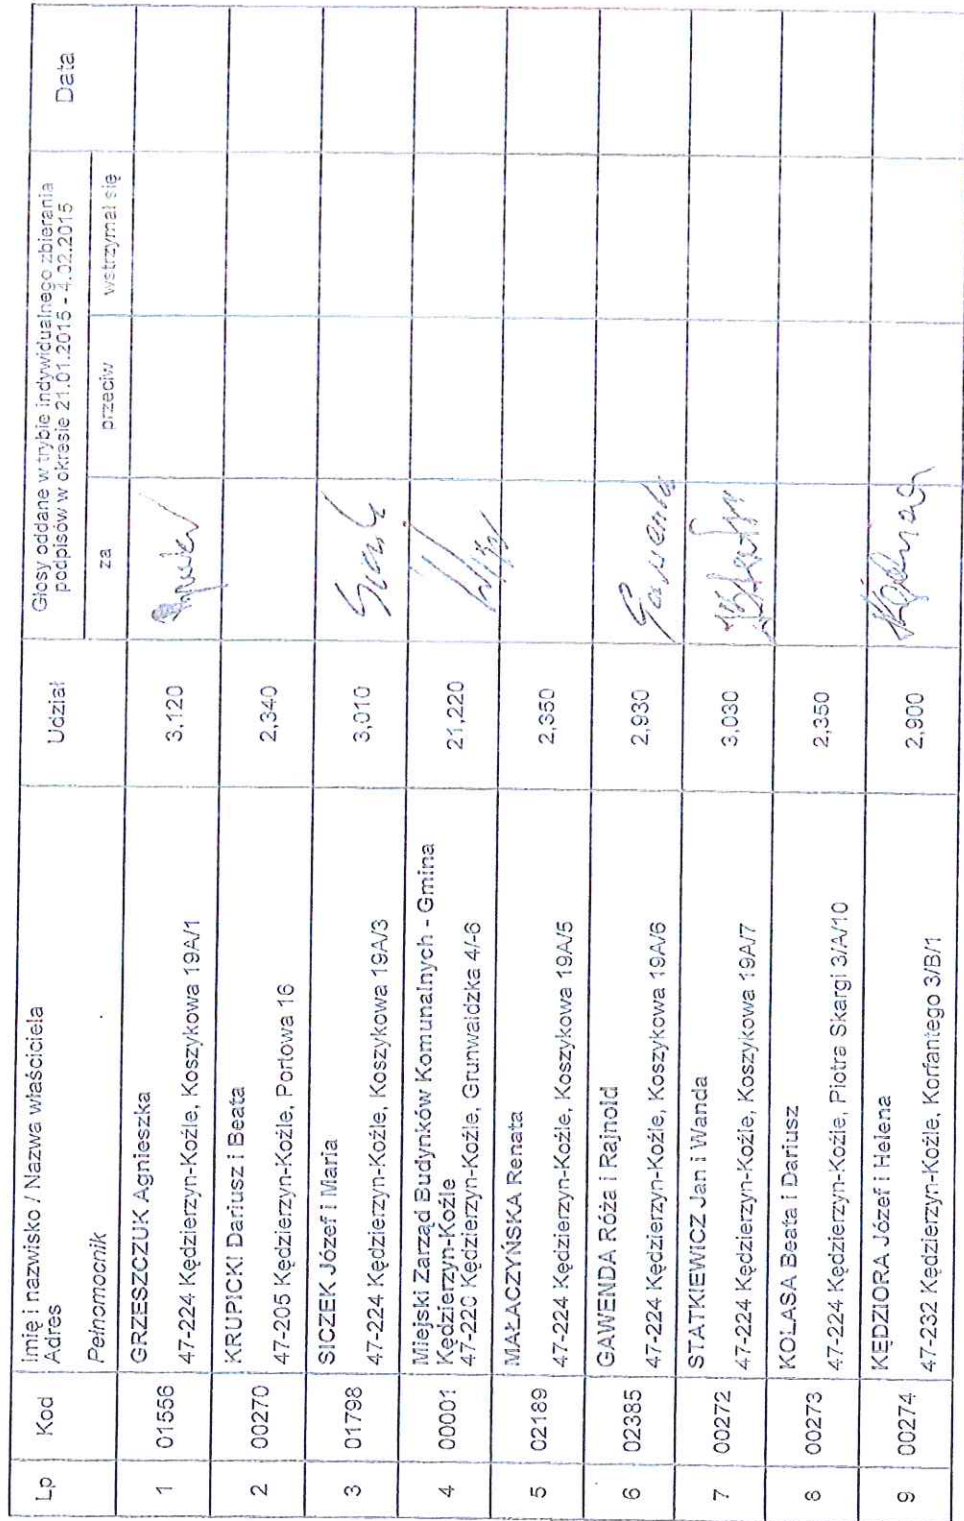 Lp Kod Imię i nazwisko / Nazwa właściciela Udział Głosy oddane w trybie indywidualnego zbierania Data
Adres podpisów w okresie 21.01.2015 - 4.02.2015
Pełnomocnik za przeciw wstrzymał się
1 01556 GRZESZCZUK Agnieszka 3,120
47-224 Kędzierzyn-Koźle, Koszykowa 19A/1
2 00270 KRUPICKI Dariusz i Beata 2,340
47-205 Kędzierzyn-Koźle, Portowa 16
3 01798 SICZEK Józef i Maria 3,010
47-224 Kędzierzyn-Koźle, Koszykowa 19A/3
4 00001 Miejski Zarząd Budynków Komunalnych - Gmina 21,220
Kędzierzyn-Koźle
47-220 Kędzierzyn-Koźle, Grunwaldzka 4/-6
5 02189 MAŁACZYŃSKA Renata 2,350
47-224 Kędzierzyn-Koźle, Koszykowa 19A/5
6 02385 GAWENDA Róża i Rajnold 2,930 Gawenda
47-224 Kędzierzyn-Koźle, Koszykowa 19A/6
7 00272 STATKIEWICZ Jan i Wanda 3,030
47-224 Kędzierzyn-Koźle, Koszykowa 19A/7
8 00273 KOLASA Beata i Dariusz 2,350
47-224 Kędzierzyn-Koźle, Piotra Skargi 3/A/10
9 00274 KĘDZIORA Józef i Helena 2,900
47-232 Kędzierzyn-Koźle, Korfantego 3/B/1